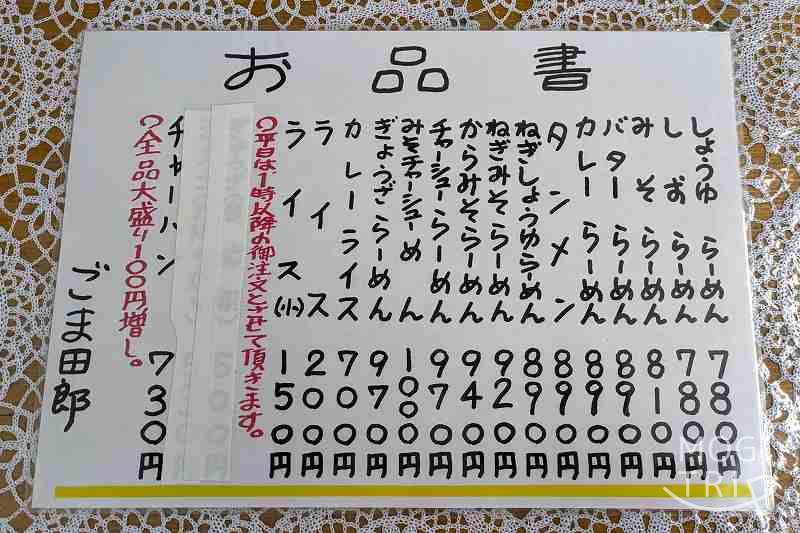 お品書
しょうゆ らーめん 780円
しお らーめん 780円
みそ らーめん 810円
バター らーめん 890円
カレー らーめん 890円
タンメン 890円
ねぎしょうゆらーめん 890円
ねぎみそらーめん 920円
からみそらーめん 940円
チャーシューらーめん 970円
みそチャーシューめん 1000円
ぎょうざらーめん 970円
カレーライス 700円
ライス 200円
ライス(小) 150円
○平日は1時以降の御注文とさせて頂きます。
チャーハン 730円
○全品大盛り100円増し。
ごま田郎
MOG
TRIP